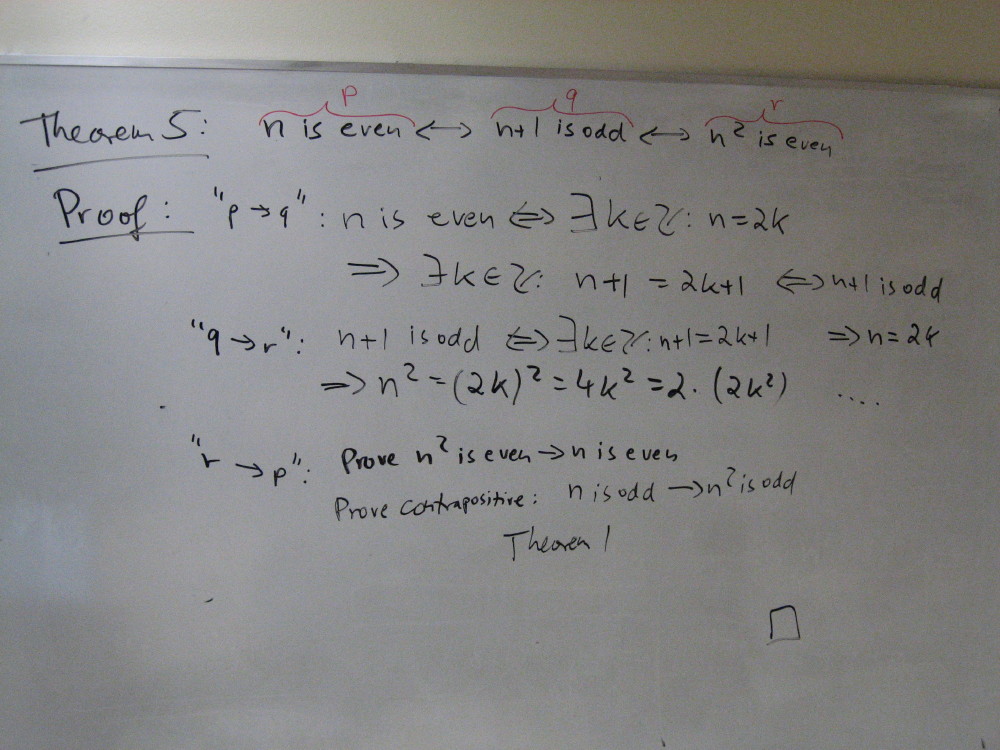 p q r
Theorem 5: n is even ⟷ n+1 is odd ⟷ n² is even
Proof: "p → q": n is even ⟺ ∃k∈ℤ: n=2k
⟹ ∃k∈ℤ: n+1 = 2k+1 ⟺ n+1 is odd
"q → r": n+1 is odd ⟺ ∃k∈ℤ: n+1=2k+1 ⟹ n=2k
⟹ n² = (2k)² = 4k² = 2·(2k²) ....
"r → p": Prove n² is even → n is even
Prove contrapositive: n is odd → n² is odd
Theorem 1
□